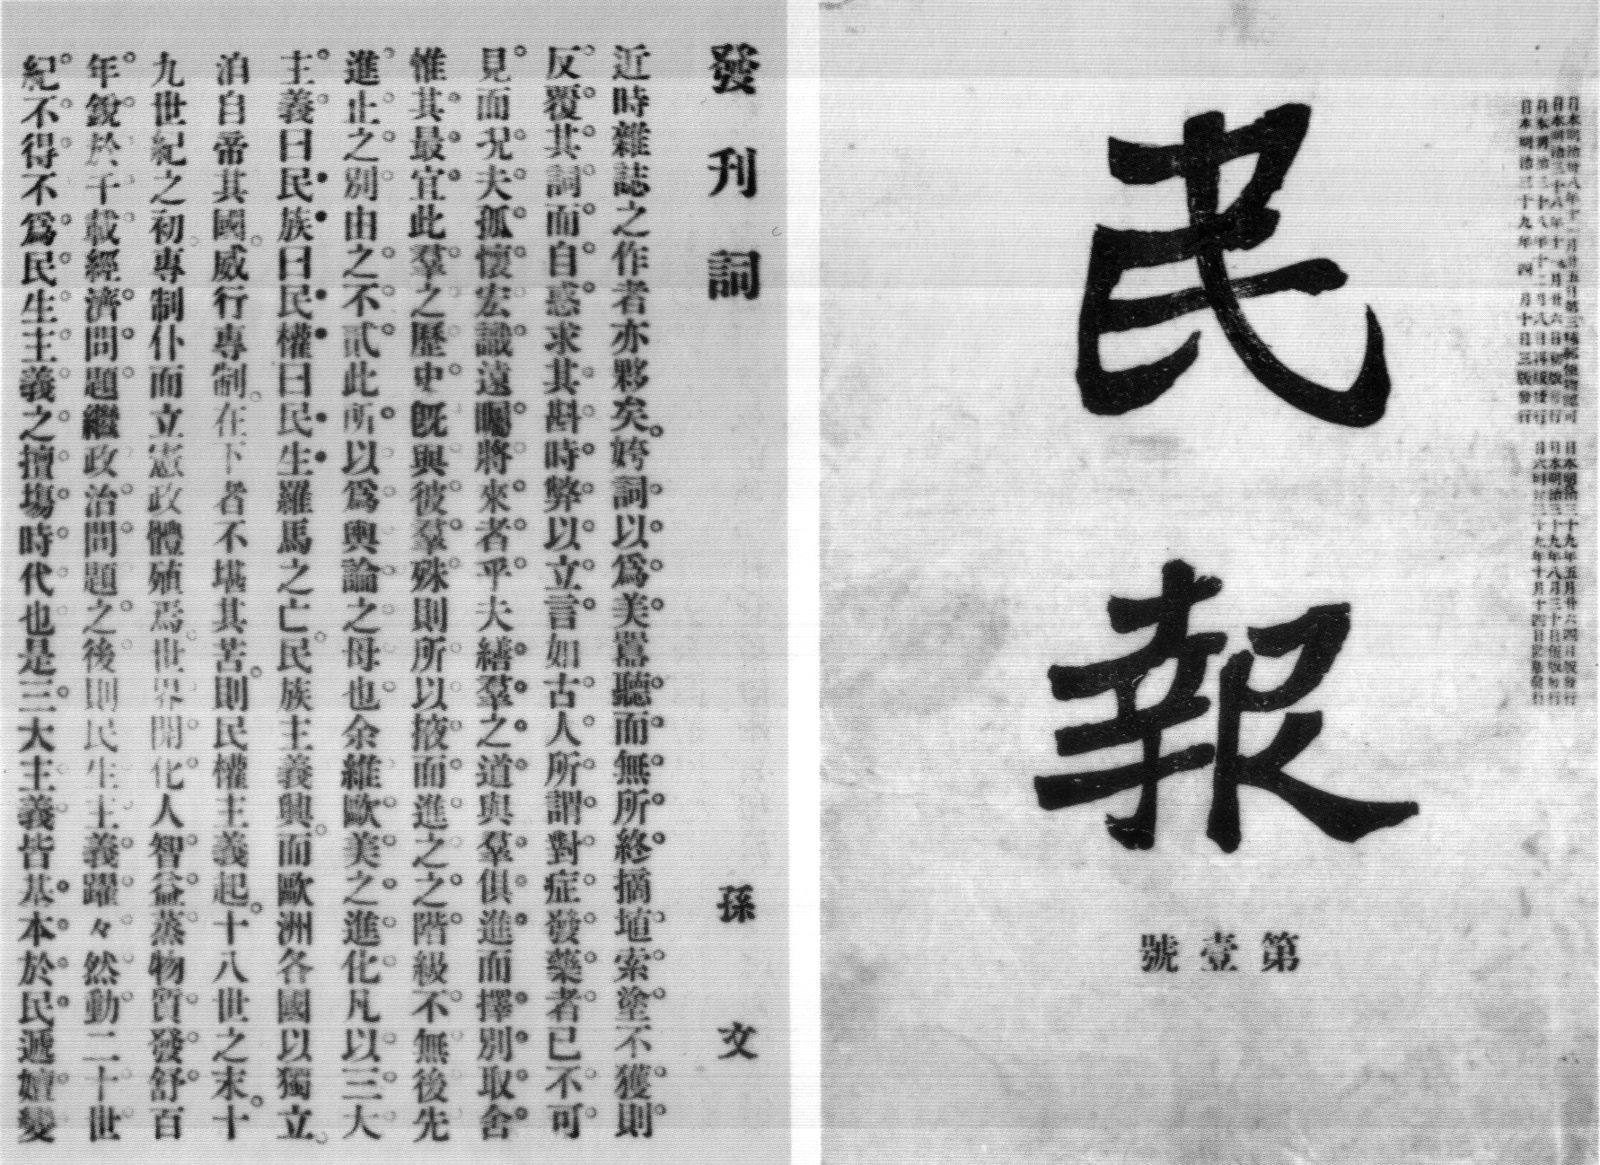 日本明治卅八年十一月廿五日第三種郵便物認可
日本明治三十八年十一月廿六日初版發行
日本明治三十八年十二月八日再版發行
日本明治三十九年四月十日三版發行
民報
第壹號
發刊詞
孫文
近時雜誌之作者亦夥矣。姱詞以爲美囂聽而無所終摘埴索塗不獲則
反覆其詞而自惑求其斟時弊以立言如古人所謂對症發藥者已不可
見而況夫孤懷宏識遠矚將來者乎夫繕羣之道與羣俱進而擇別取舍
惟其最宜此羣之歷史旣與彼羣殊則所以掖而進之之階級不無後先
進止之別由之不貳此所以爲輿論之母也余維歐美之進化凡以三大
主義曰民族曰民權曰民生羅馬之亡。民族主義興。而歐洲各國以獨立。
洎自帝其國。威行專制。在下者不堪其苦。則民權主義起。十八世之末。十
九世紀之初。專制仆而立憲政體殖焉。世界開化人智益蒸物質發舒百
年銳於千載經濟問題繼政治問題之後則民生主義躍々然動二十世
紀不得不爲民生主義之擅塲時代也是三大主義皆基本於民遞嬗變